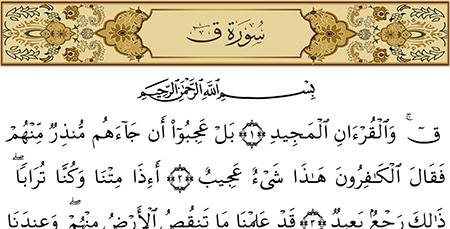 سُورَةُ ق
بِسْمِ ٱللَّهِ ٱلرَّحْمَٰنِ ٱلرَّحِيمِ
قٓۚ وَٱلْقُرْءَانِ ٱلْمَجِيدِ ﴿١﴾ بَلْ عَجِبُوٓا۟ أَن جَآءَهُم مُّنذِرٌ مِّنْهُمْ
فَقَالَ ٱلْكَٰفِرُونَ هَٰذَا شَىْءٌ عَجِيبٌ ﴿٢﴾ أَءِذَا مِتْنَا وَكُنَّا تُرَابًاۖ
ذَٰلِكَ رَجْعٌۢ بَعِيدٌ ﴿٣﴾ قَدْ عَلِمْنَا مَا تَنقُصُ ٱلْأَرْضُ مِنْهُمْۖ وَعِندَنَا